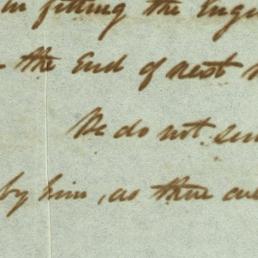 in fitting the Engi
the End of next
We do not sen
by him, as there